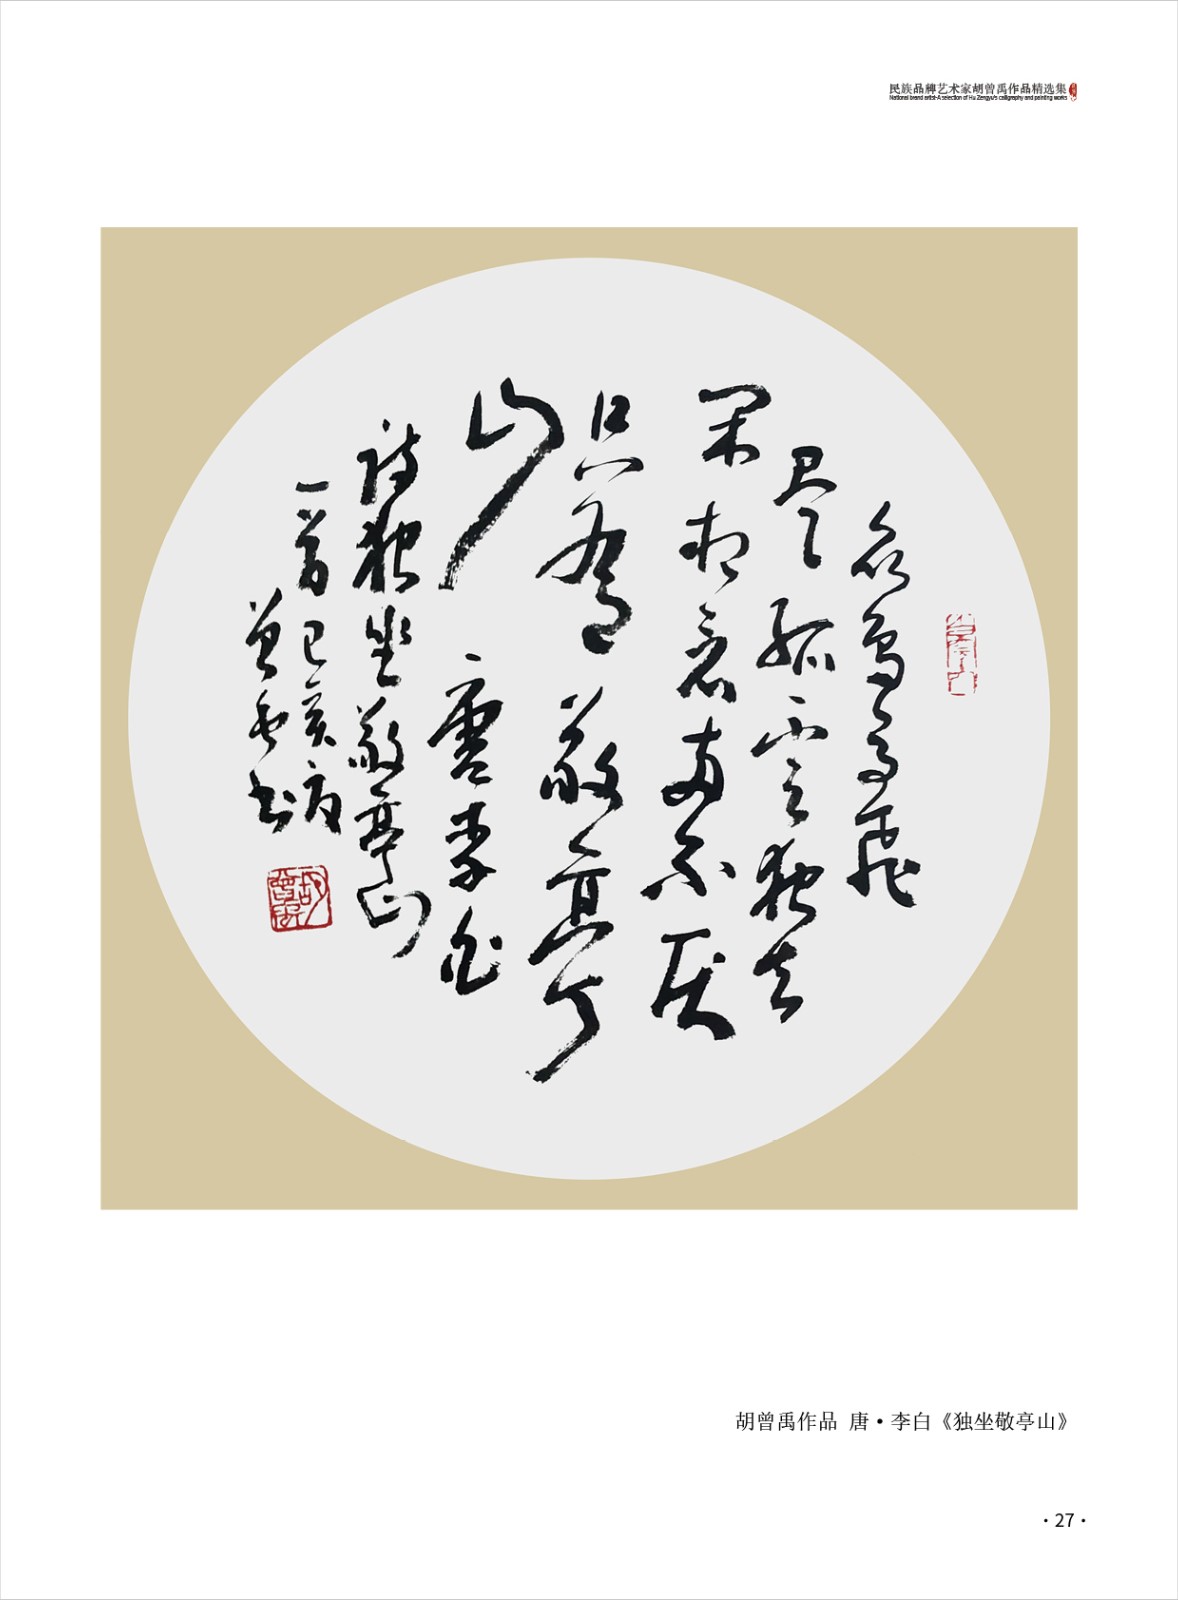 民族品牌艺术家胡曾禹作品精选集
National brand artist-A selection of Hu Zengyu's calligraphy and painting works
众鸟高飞
尽孤云独去
闲相看两不厌
只有敬亭
山 唐李白
诗独坐敬亭山
一首己亥
曾禹书
胡曾禹作品 唐·李白《独坐敬亭山》
·27·